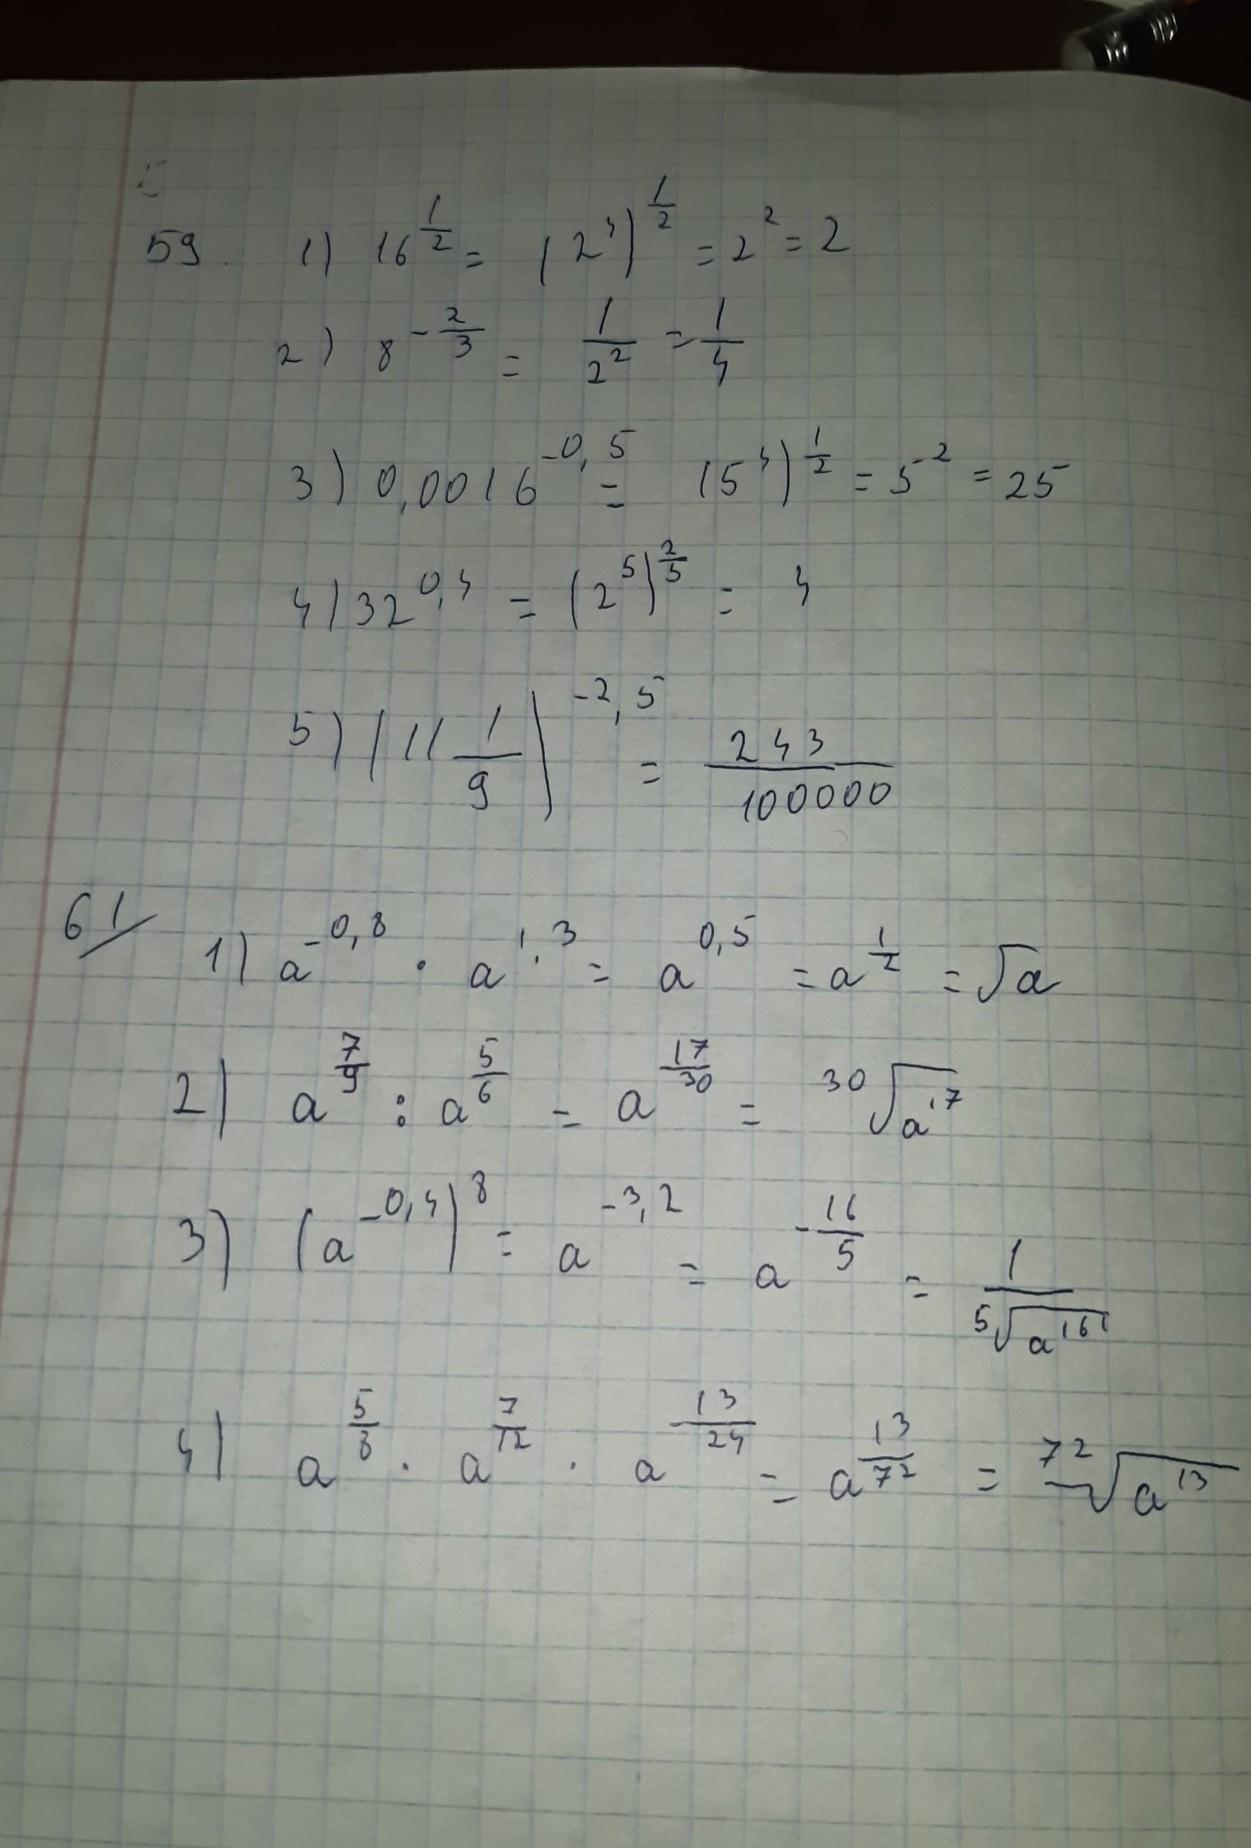 59. 1) 16^{1/2} = (2^4)^{1/2} = 2^2 = 2
2) 8^{-2/3} = 1/2^2 = 1/4
3) 0,0016^{-0,5} = (5^4)^{1/2} = 5^2 = 25
4) 32^{0,4} = (2^5)^{2/5} = 4
5) (11 1/9)^{-2,5} = 243/100000
61/ 1) a^{-0,8} · a^{1.3} = a^{0,5} = a^{1/2} = √a
2) a^{7/9} : a^{5/6} = a^{17/30} = ³⁰√a^{17}
3) (a^{-0,4})^8 = a^{-3,2} = a^{-16/5} = 1/⁵√a^{16}
4) a^{5/8} · a^{7/12} · a^{-13/24} = a^{13/72} = ⁷²√a^{13}